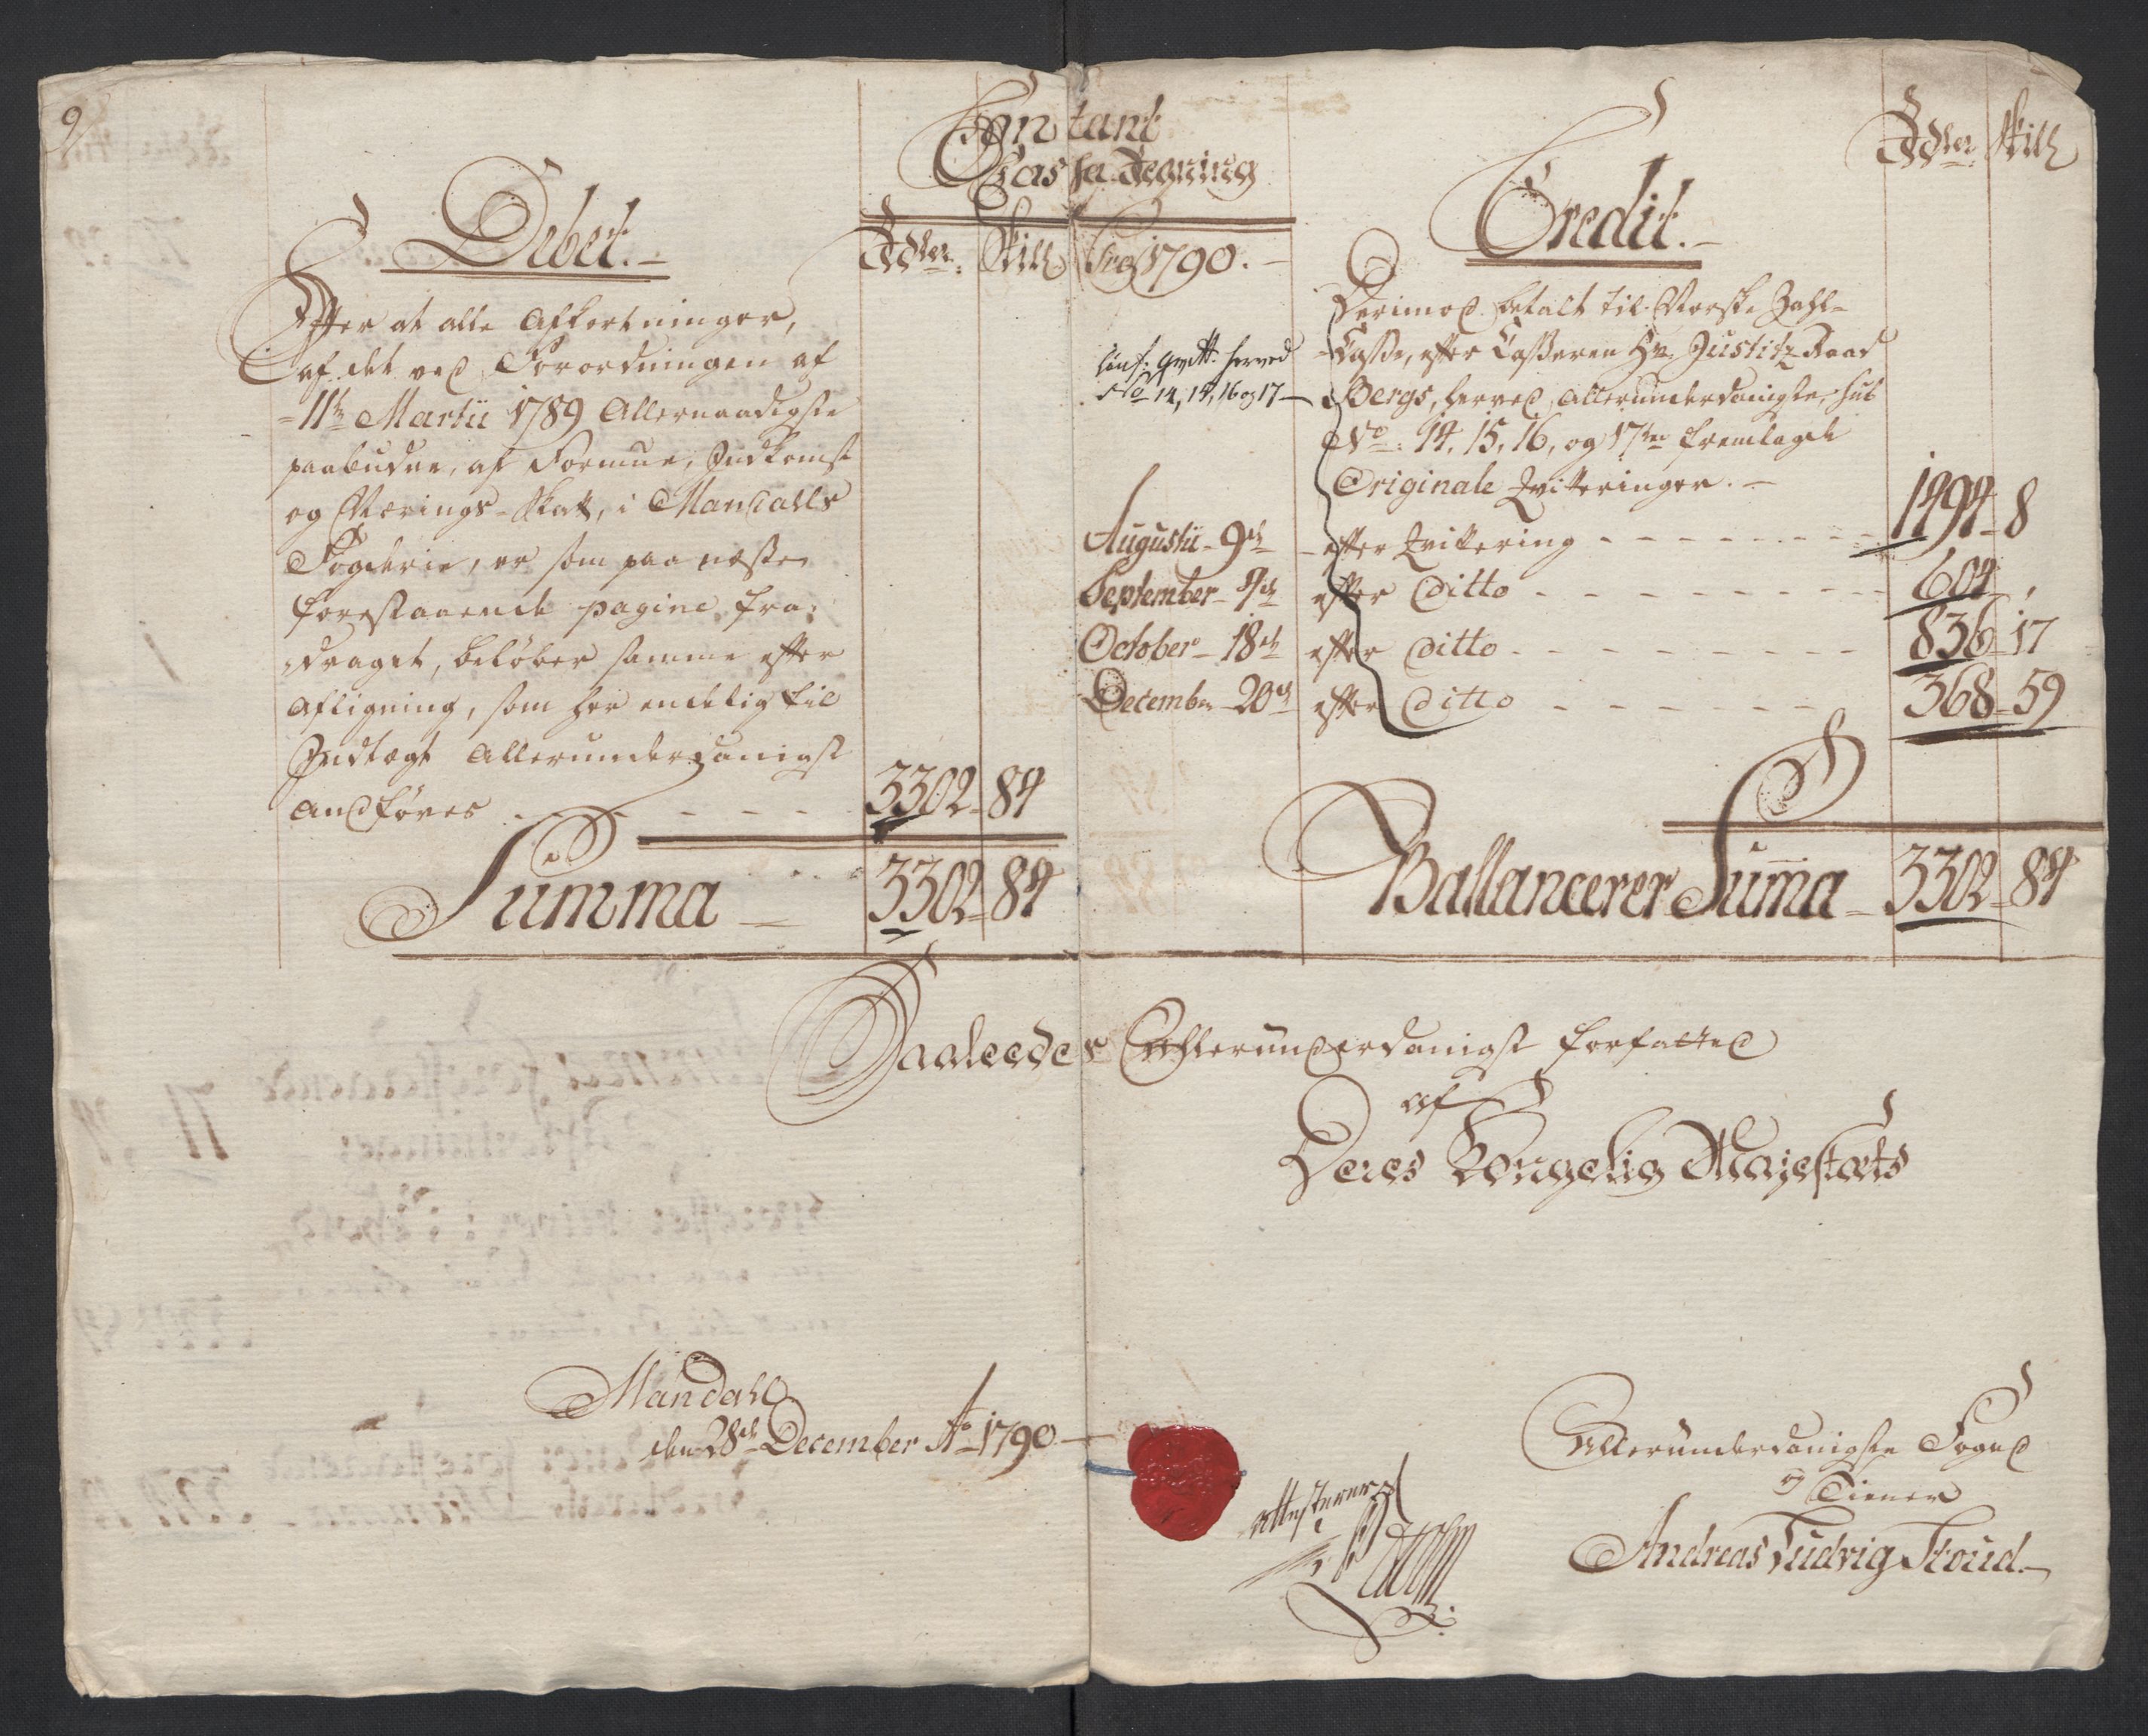 9
Contant
Cassa Regning
Debet.
Rdler. Skill
Efter at alle Afkortninger,
af det ved Forordningen af
11te Martii 1789 Allernaadigste
paabudne, af Formue, Indkomst
og Nærings-Skatt, i Mandahls
Fogderie, er som paa næste
forestaaende pagine fra-
draget, beløber samme efter
Afligning, som her endelig til
Indtægt Allerunderdanigst
andføres 3302 - 84
Summa 3302 - 84
Rdler Skill
Credit.
1790.
Derimod betalt til Norske Zahl-
Casse, efter Casseren Hr. Justitz Raad
Bergs, herved Allerunderdanigste, sub
No: 14, 15, 16, og 17ten fremlagde
Originale Qvitteringer.
conf: Qvitt. herved
No 14, 15, 16 og 17
Augustii 9de efter Qvittering 1494 - 8
September 7de efter Ditto 604 - ,
October 18de efter Ditto 836 - 17
December 20de efter Ditto 368 - 59
Ballancerer Summa 3302 - 84
Saaleedes Allerunderdanigst forfatted
af
Deres Kongelig Majestæts
Mandahl
den 28de December Ao 1790
Attesterer
Allerunderdanigste Foged
og Tiener
Andreas Ludvig Stoud.